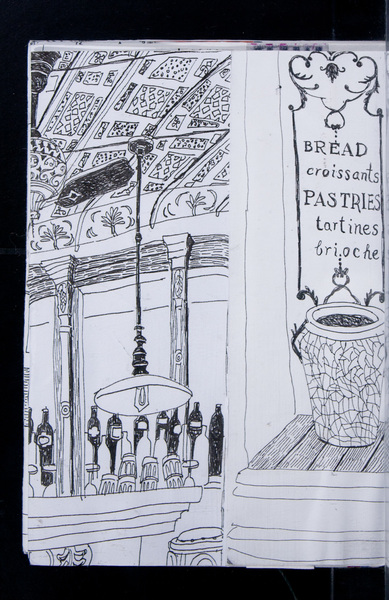 BREAD
croissants
PASTRIES
tartines
brioche